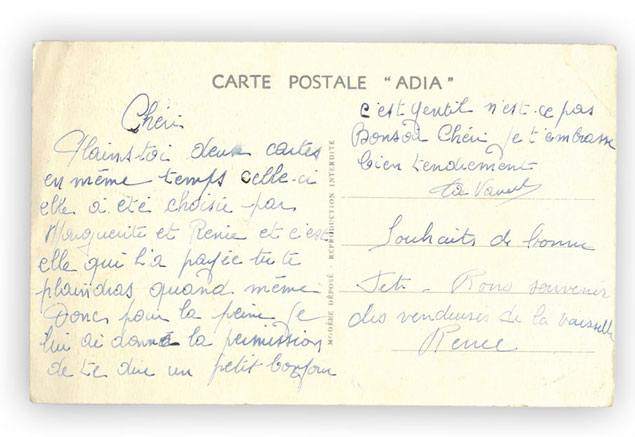 CARTE POSTALE "ADIA"
Chéri
Plains toi deux cartes
en même temps celle-ci
elle a été choisie par
Marguerite et Renée et c'est
elle qui l'a payée tu te
plaindras quand même
Donc pour la peine je
lui ai donné la permission
de te dire un petit bonjour
MODÈLE DÉPOSÉ - REPRODUCTION INTERDITE
c'est gentil n'est-ce pas
Bonsoir Chéri je t'embrasse
bien tendrement
ta
Souhaits de bonne
fête - Bons souvenirs
des vendeuses de la vaisselle
Renée